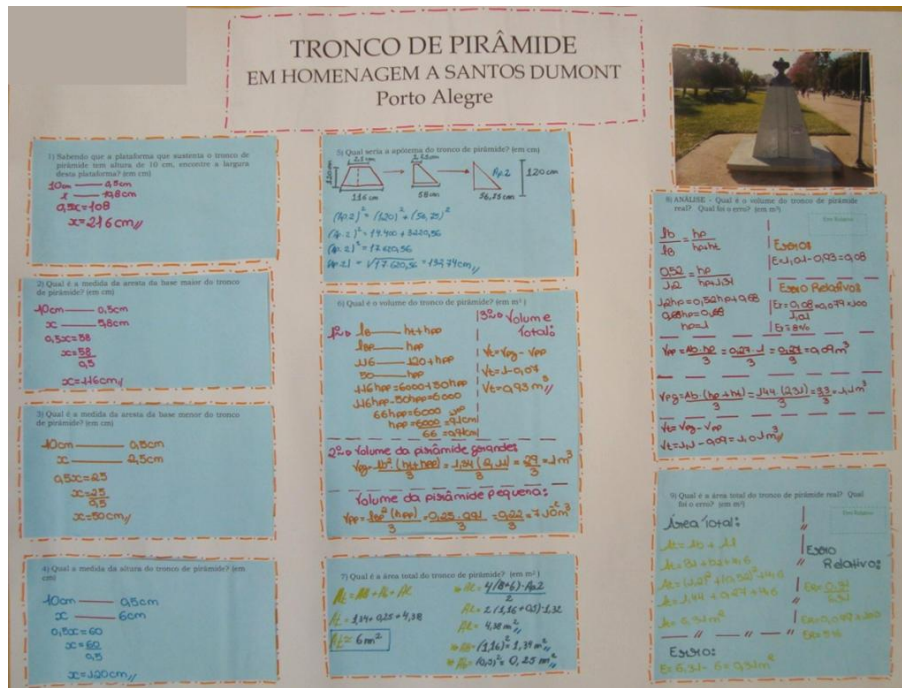 TRONCO DE PIRÂMIDE
EM HOMENAGEM A SANTOS DUMONT
Porto Alegre
1) Sabendo que a plataforma que sustenta o tronco de
pirâmide tem altura de 10 cm, encontre a largura
desta plataforma? (em cm)
10cm —— 0,5cm
x —— 10,8cm
0,5x=108
x=216cm//
2) Qual é a medida da aresta da base maior do tronco
de pirâmide? (em cm)
10cm —— 0,5cm
x —— 5,8cm
0,5x=58
x=58
0,5
x=116cm//
3) Qual é a medida da aresta da base menor do tronco
de pirâmide? (em cm)
10cm —— 0,5cm
x —— 2,5cm
0,5x=25
x=25
0,5
x=50cm//
4) Qual a medida da altura do tronco de pirâmide? (em
cm)
10cm —— 0,5cm
x —— 6cm
0,5x=60
x=60
0,5
x=120cm//
5) Qual seria a apótema do tronco de pirâmide? (em cm)
120cm
116cm
58cm
Ap.2
56,25cm
120cm
(Ap.2)² = (120)² + (56,25)²
(Ap.2)² = 14.400 + 3220,56
(Ap.2)² = 17.620,56
Ap.2 = √17.620,56 = 132,74cm//
6) Qual é o volume do tronco de pirâmide? (em m³)
1º. lB —— ht+hpp
lBP —— hpp
116 —— 120+hpp
50 —— hpp
116hpp=6000+50hpp
116hpp-50hpp=6000
66hpp=6000
hpp=6000=91cm
66 =0,91cm
3º. Volume
Total:
Vt=Vpg-Vpp
Vt=1-0,07
Vt=0,93m³//
2º. Volume da pirâmide grande:
Vpg=lb²(ht+hpp)=1,34(2,11)=29=1m³
3 3 3
Volume da pirâmide pequena:
Vpp=lbp²(hpp)=0,25.0,91=0,22=7.10⁻²m³
3 3 3
7) Qual é a área total do tronco de pirâmide? (em m²)
At = AB + Ab + Al
At = 1,34+0,25+4,38
At = 6m²
Al = 4(B+b).Ap2
2
Al = 2(1,16+0,5).1,32
Al = 4,38m²//
AB = (1,16)² = 1,34m²//
Ab = (0,5)² = 0,25m²//
8) ANÁLISE - Qual é o volume do tronco de pirâmide
real? Qual foi o erro? (em m³)
lb = hp
lB hp+ht
0,52 = hp
1,2 hp+1,31
1,2hp=0,52hp+0,68
0,68hp=0,68
hp=1
Erro:
E=1,01-0,93=0,08
Erro Relativo:
Er=0,08=0,079x100
1,01
Er=8%
Vpp=Ab.hp=0,27.1=0,27=0,09m³
3 3 3
Vpg=Ab.(hp+ht)=1,44(2,31)=3,3=1,1m³
3 3 3
Vt=Vpg-Vpp
Vt=1,1-0,09=1,01m³//
9) Qual é a área total do tronco de pirâmide real? Qual
foi o erro? (em m²)
Área Total:
At=(1,2)²+(0,52)²+4,6
At=1,44+0,27+4,6
At=6,31m²
Erro:
E=6,31-6=0,31m²
Erro
Relativo:
Er=0,31
6,31